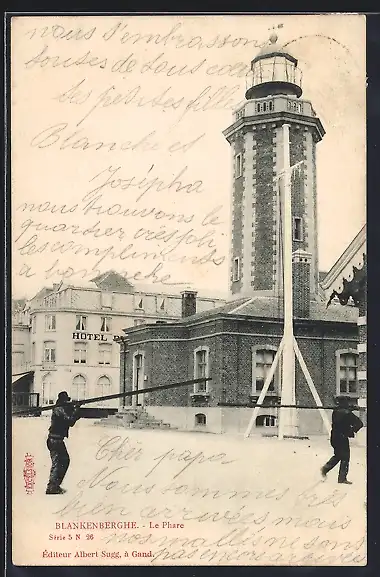 nous t'embrassons
toutes de tout coeur
tes petites filles
Blanche et
Josépha
nous trouvons le
quartier très joli
les compliments
à bonne mère
HOTEL
Cher papa
Nous sommes très
bien arrivées mais
nos malles ne sont
pas encore arrivées
BLANKENBERGHE. - Le Phare
Série 5 N 26
Éditeur Albert Sugg, à Gand.